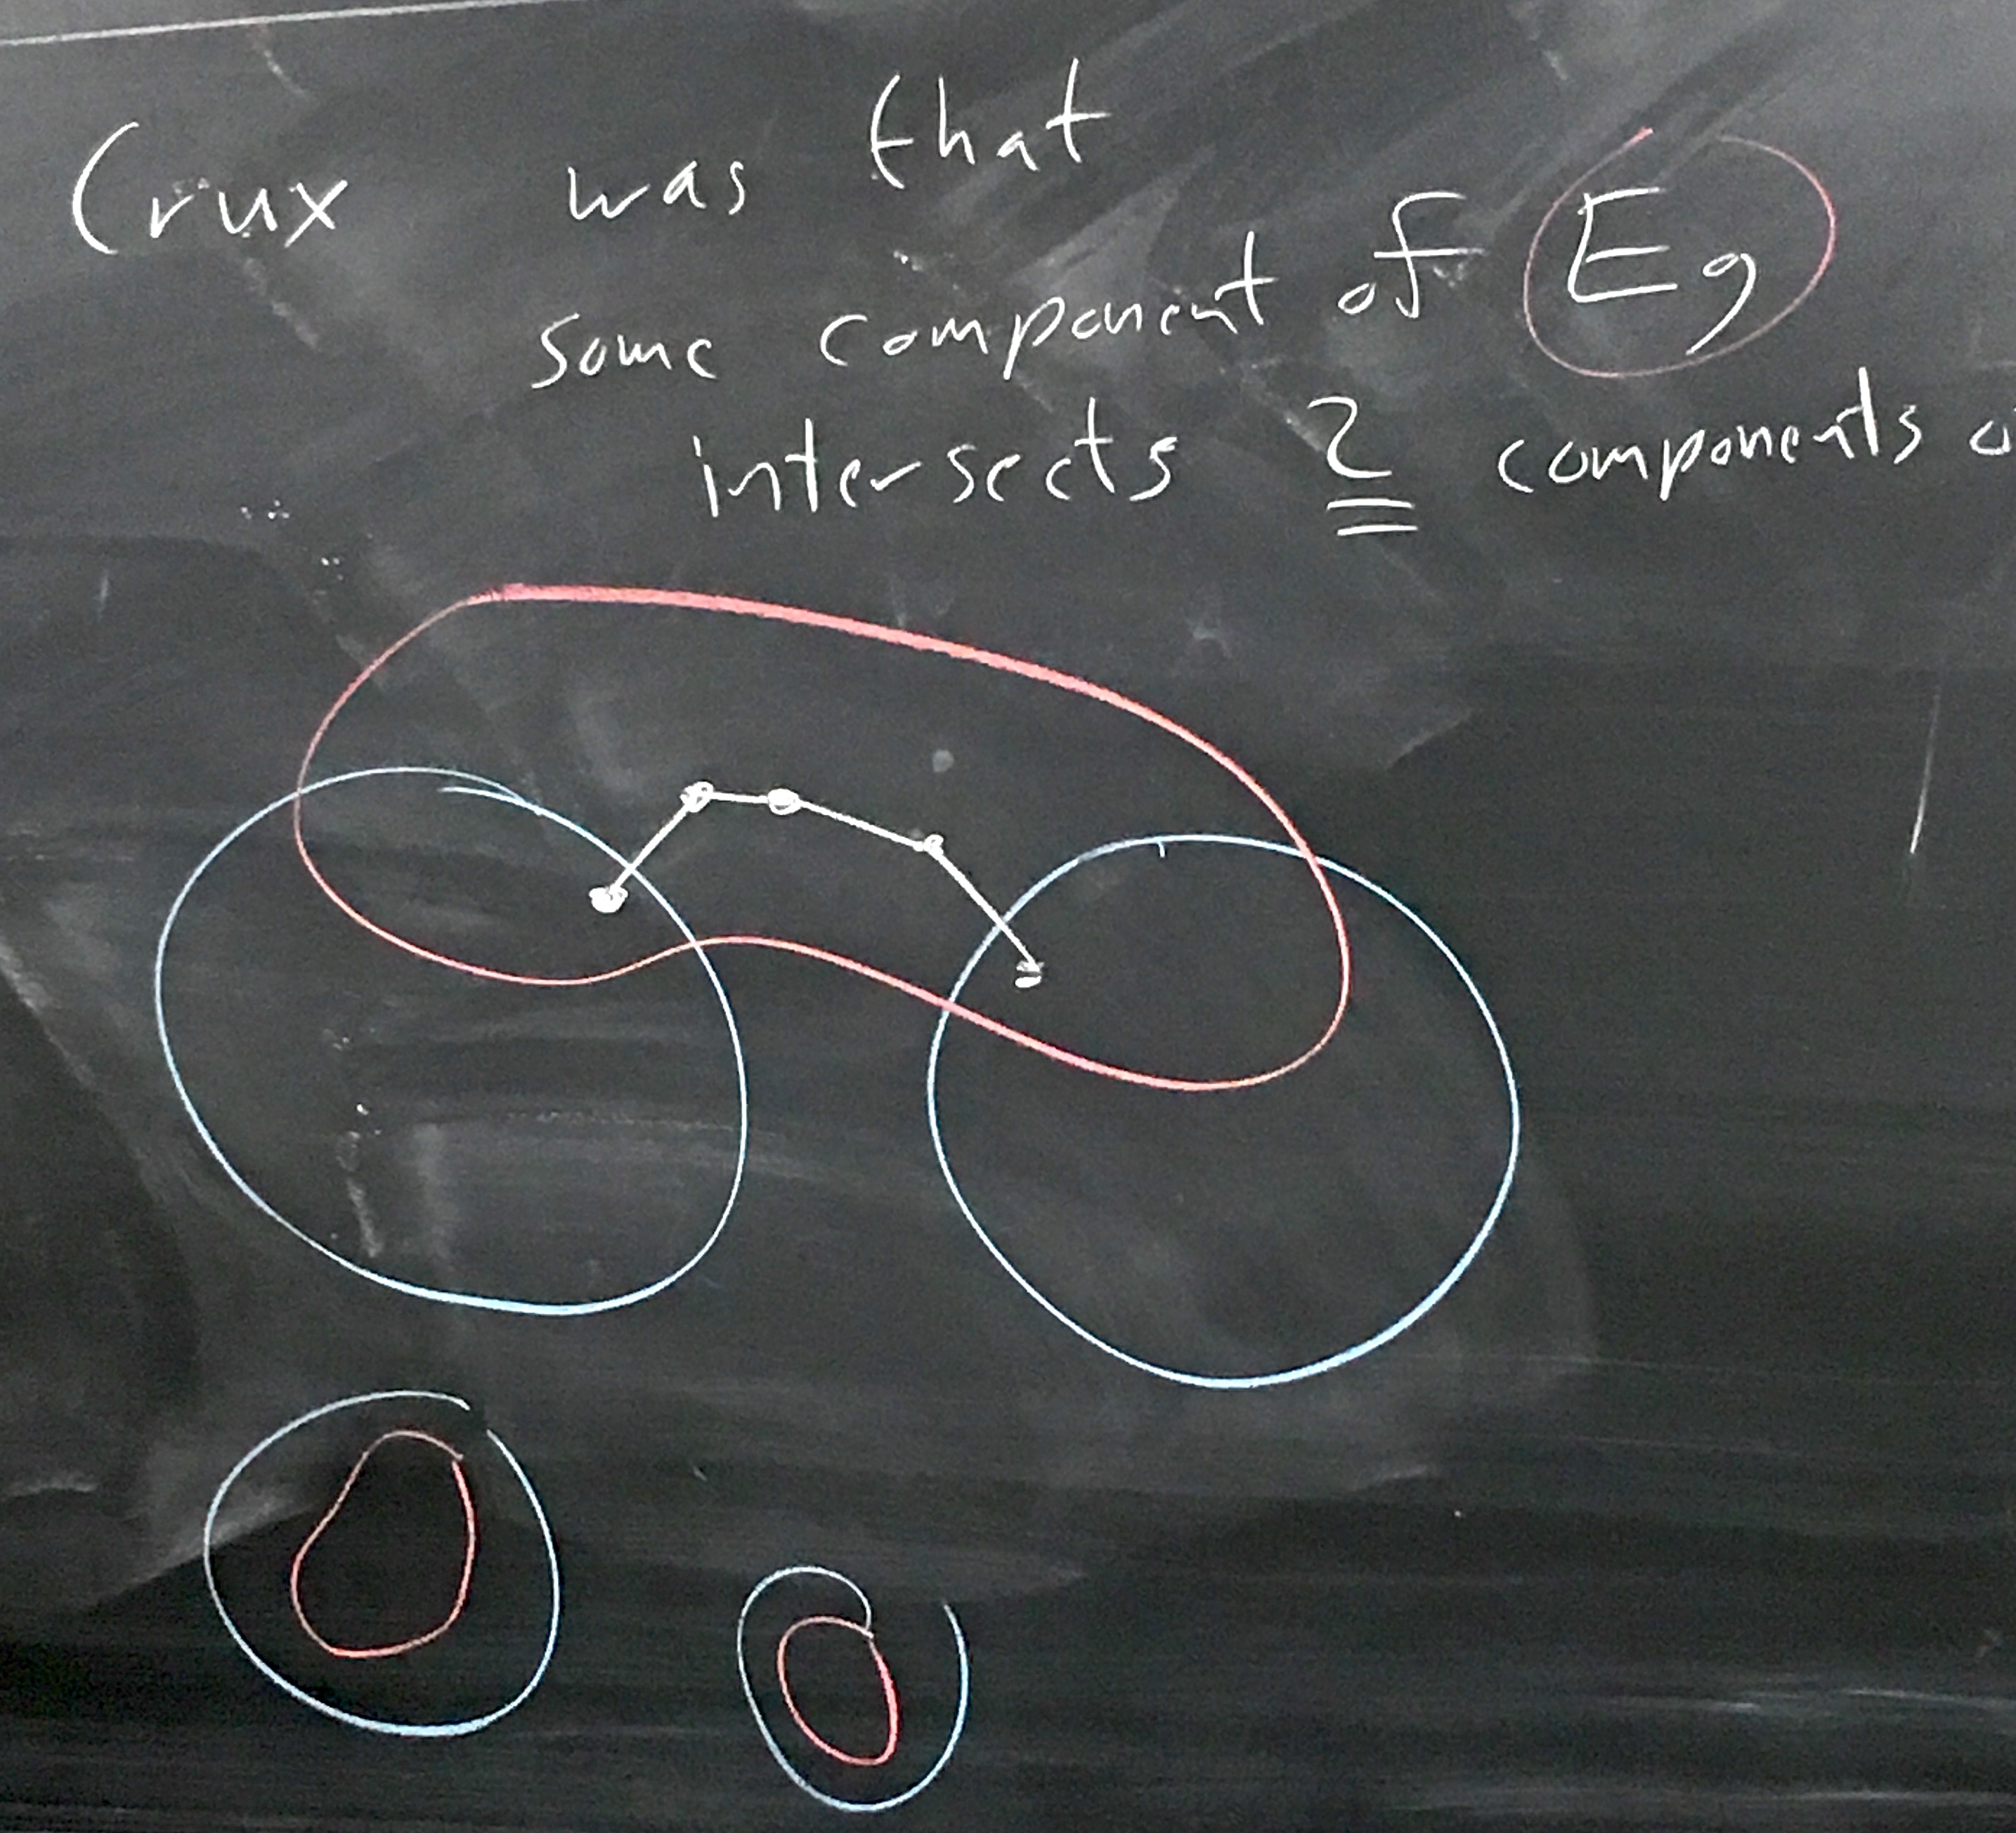 Crux was that
some component of Eg
intersects 2 components